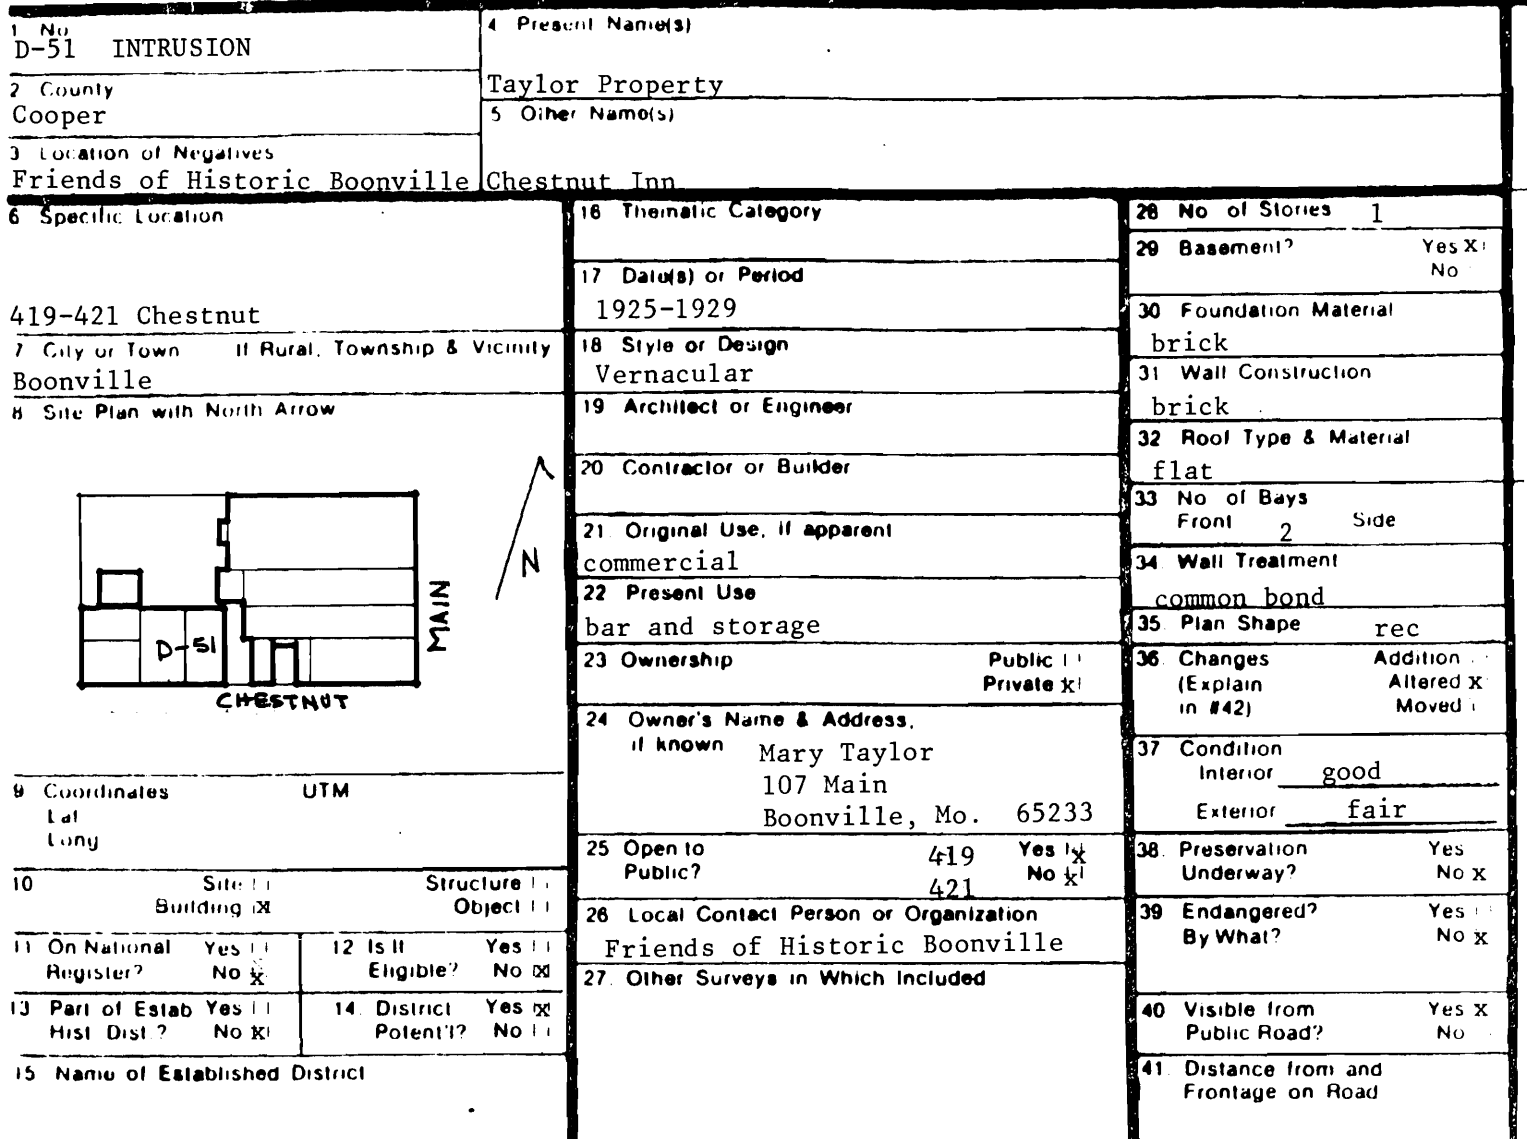 1 No
D-51 INTRUSION
4 Present Name(s)
Taylor Property
2 County
Cooper
5 Other Name(s)
3 Location of Negatives
Friends of Historic Boonville
Chestnut Inn
6 Specific Location
419-421 Chestnut
7 City or Town If Rural, Township & Vicinity
Boonville
8 Site Plan with North Arrow
N
MAIN
D-51
CHESTNUT
9 Coordinates UTM
Lat
Long
10 Site Structure
Building X Object
11 On National Yes
Register? No X
12 Is It Yes
Eligible? No X
13 Part of Estab Yes
Hist Dist.? No X
14 District Yes X
Potent'l? No
15 Name of Established District
16 Thematic Category
17 Date(s) or Period
1925-1929
18 Style or Design
Vernacular
19 Architect or Engineer
20 Contractor or Builder
21 Original Use, if apparent
commercial
22 Present Use
bar and storage
23 Ownership Public
Private X
24 Owner's Name & Address,
if known
Mary Taylor
107 Main
Boonville, Mo. 65233
25 Open to 419 Yes X
Public? 421 No X
26 Local Contact Person or Organization
Friends of Historic Boonville
27. Other Surveys in Which Included
28 No of Stories 1
29 Basement? Yes X
No
30 Foundation Material
brick
31 Wall Construction
brick
32 Roof Type & Material
flat
33 No of Bays
Front 2 Side
34 Wall Treatment
common bond
35 Plan Shape rec
36 Changes Addition
(Explain Altered X
in #42) Moved
37 Condition
Interior good
Exterior fair
38. Preservation Yes
Underway? No X
39 Endangered? Yes
By What? No X
40 Visible from Yes X
Public Road? No
41. Distance from and
Frontage on Road